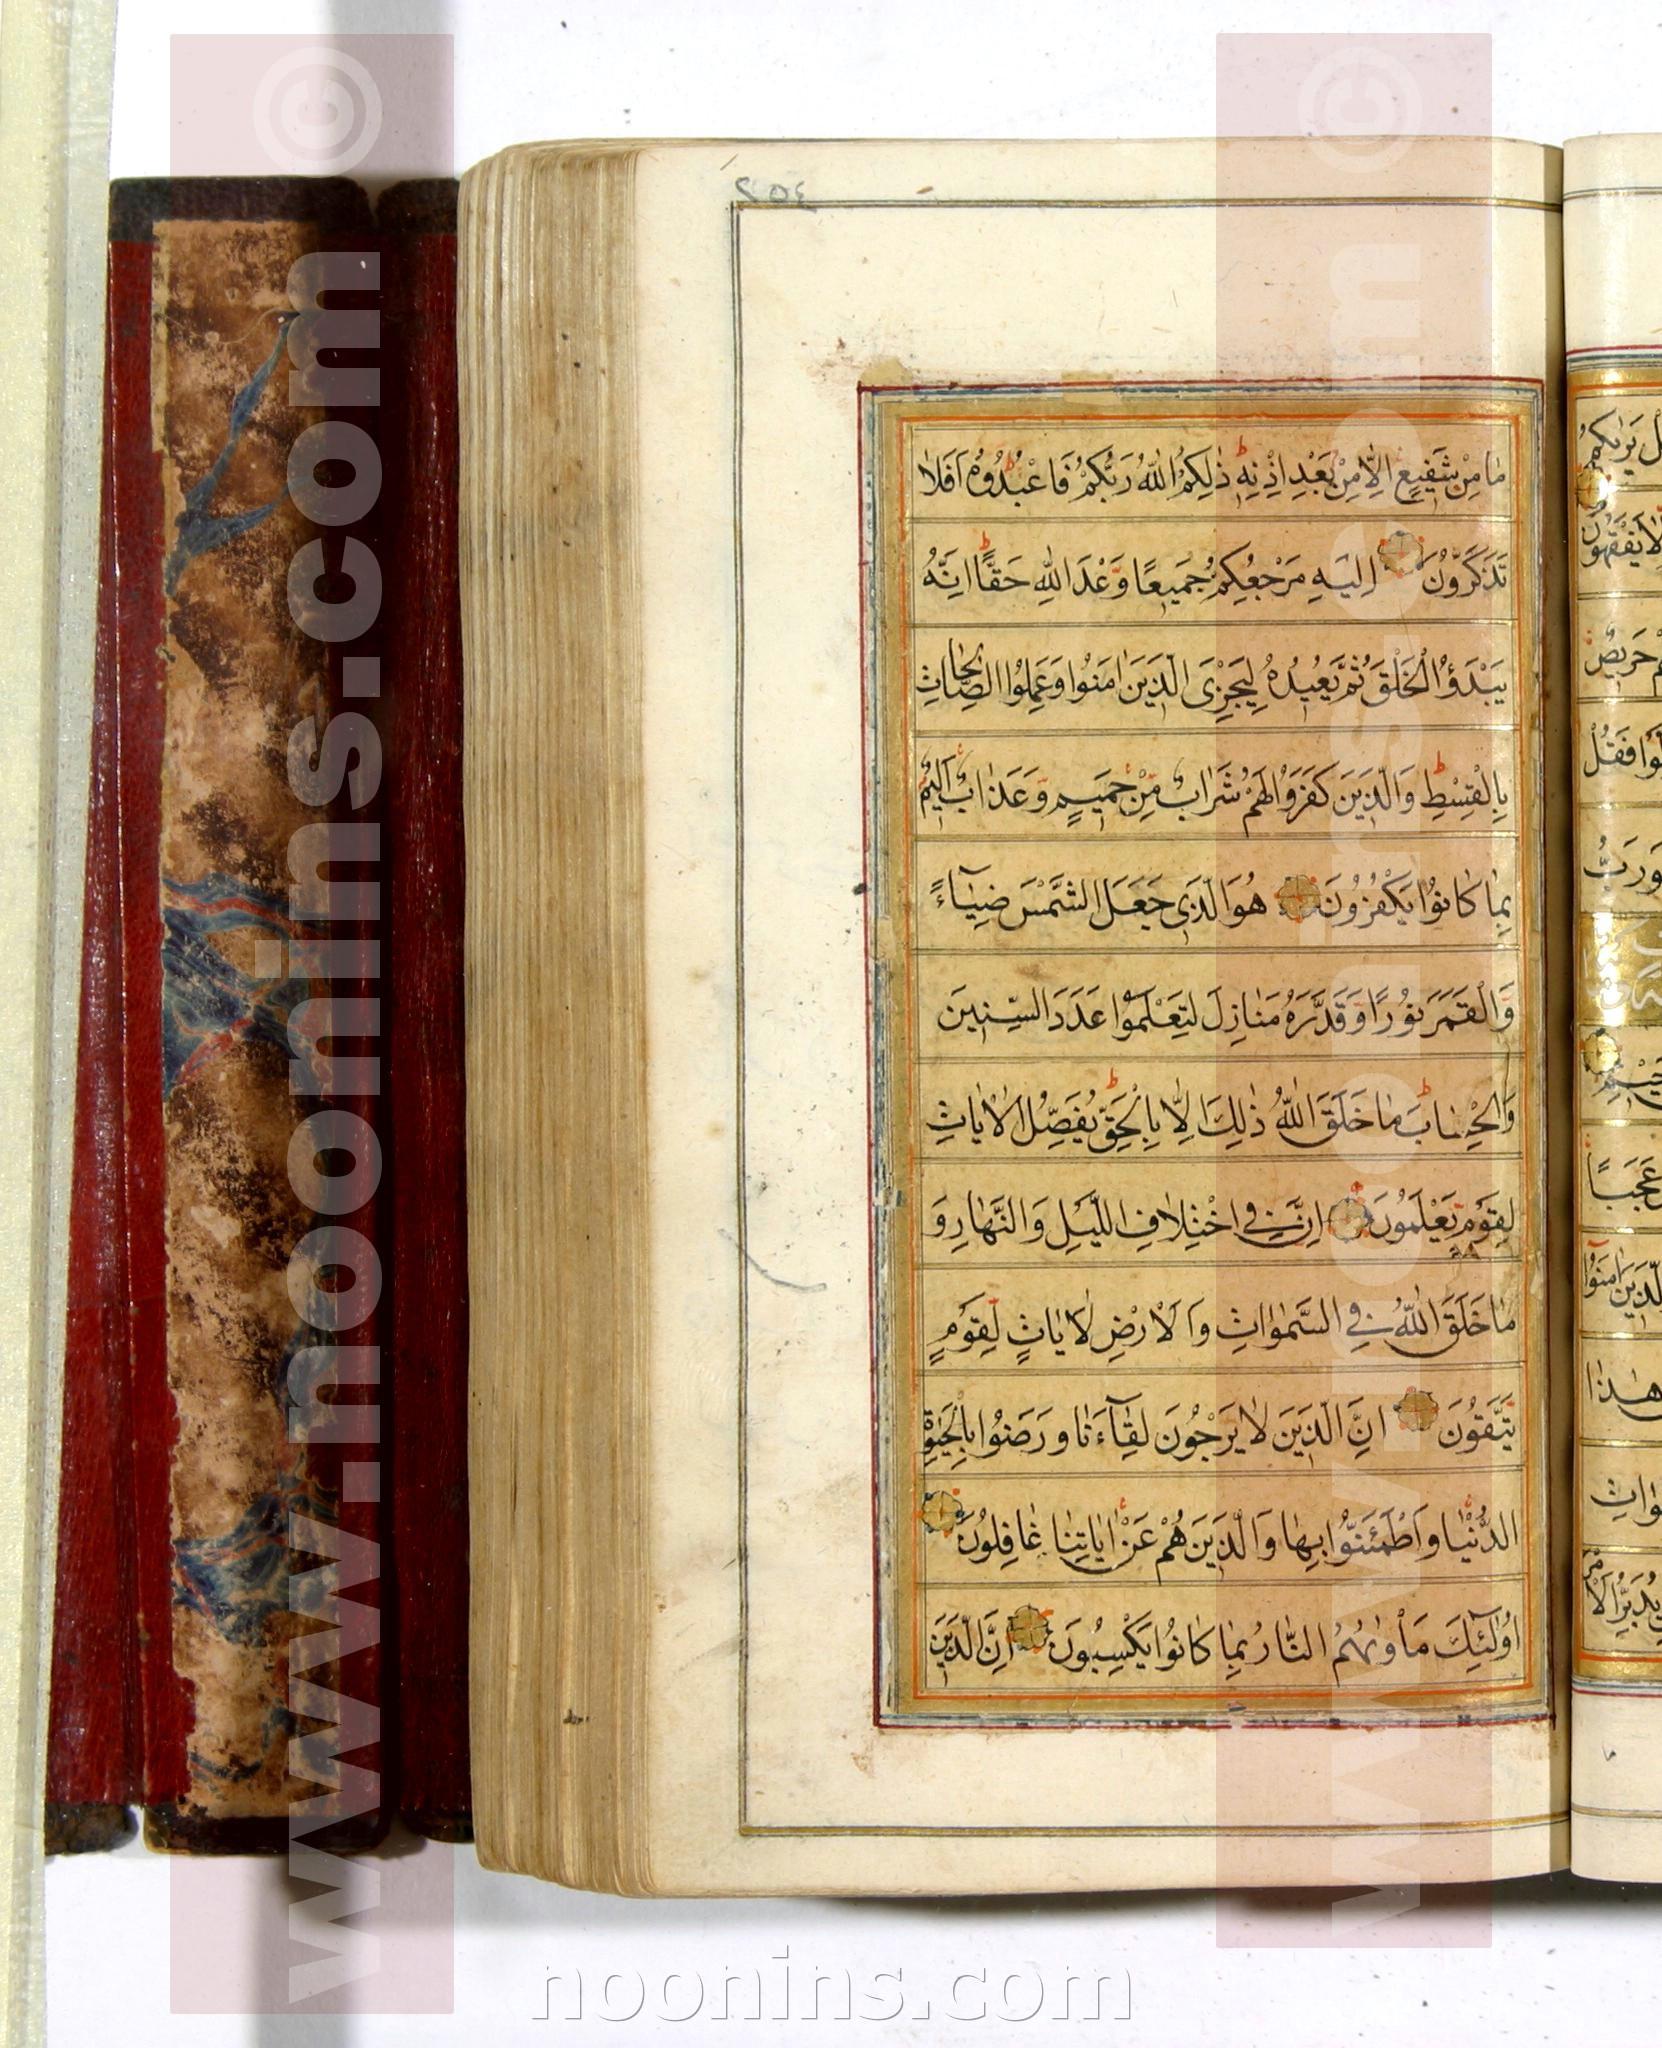 مٰا مِنْ شَفِيعٍ اِلّٰا مِنْ بَعْدِ اِذْنِهِ ذٰلِكُمُ اللّٰهُ رَبُّكُمْ فَاعْبُدُوهُ اَفَلٰا
تَذَكَّرُونَ اِلَيْهِ مَرْجِعُكُمْ جَمِيعًا وَعْدَ اللّٰهِ حَقًّا اِنَّهُ
يَبْدَؤُا الْخَلْقَ ثُمَّ يُعِيدُهُ لِيَجْزِىَ الَّذِينَ اٰمَنُوا وَعَمِلُوا الصّٰالِحٰاتِ
بِالْقِسْطِ وَالَّذِينَ كَفَرُوا لَهُمْ شَرٰابٌ مِنْ حَمِيمٍ وَعَذٰابٌ اَلِيمٌ
بِمٰا كٰانُوا يَكْفُرُونَ هُوَ الَّذِى جَعَلَ الشَّمْسَ ضِيٰآءً
وَالْقَمَرَ نُورًا وَقَدَّرَهُ مَنٰازِلَ لِتَعْلَمُوا عَدَدَ السِّنِينَ
وَالْحِسٰابَ مٰا خَلَقَ اللّٰهُ ذٰلِكَ اِلّٰا بِالْحَقِّ يُفَصِّلُ الْاٰيٰاتِ
لِقَوْمٍ يَعْلَمُونَ اِنَّ فِى اخْتِلٰافِ اللَّيْلِ وَالنَّهٰارِ وَ
مٰا خَلَقَ اللّٰهُ فِى السَّمٰوٰاتِ وَالْاَرْضِ لَاٰيٰاتٍ لِقَوْمٍ
يَتَّقُونَ اِنَّ الَّذِينَ لٰا يَرْجُونَ لِقٰآءَنٰا وَرَضُوا بِالْحَيٰوةِ
الدُّنْيٰا وَاطْمَئَنُّوا بِهٰا وَالَّذِينَ هُمْ عَنْ اٰيٰاتِنٰا غٰافِلُونَ
اُولٰئِكَ مَأْوٰيهُمُ النّٰارُ بِمٰا كٰانُوا يَكْسِبُونَ اِنَّ الَّذِينَ
www.noonins.com ©
www.noonins.com ©
noonins.com